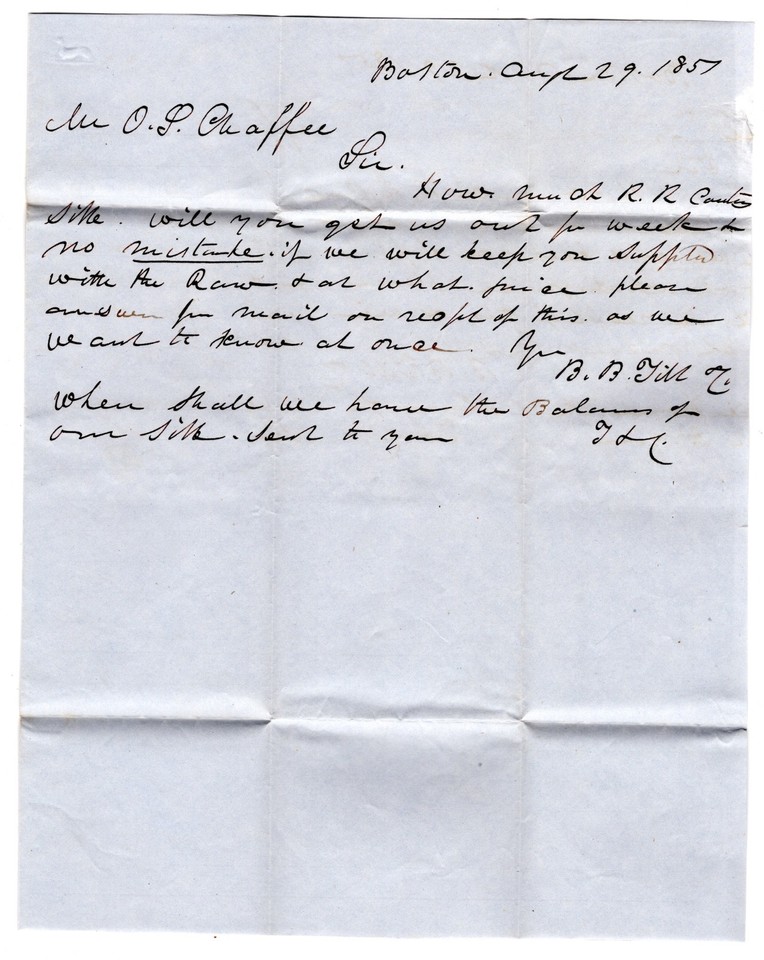 Boston. Augt 29. 1851
Mr O. S. Chaffee
Sir.
How much R. R Canton
Silk. will you get us out pr week &
no mistake. if we will keep you Supplied
with the Raw. & at what. price please
answer pr mail on recpt of this. as we
want to know at once. Yrs
B. B. Tilt & Co
When Shall we have the Balance of
our Silk. Sent to you
T & C.